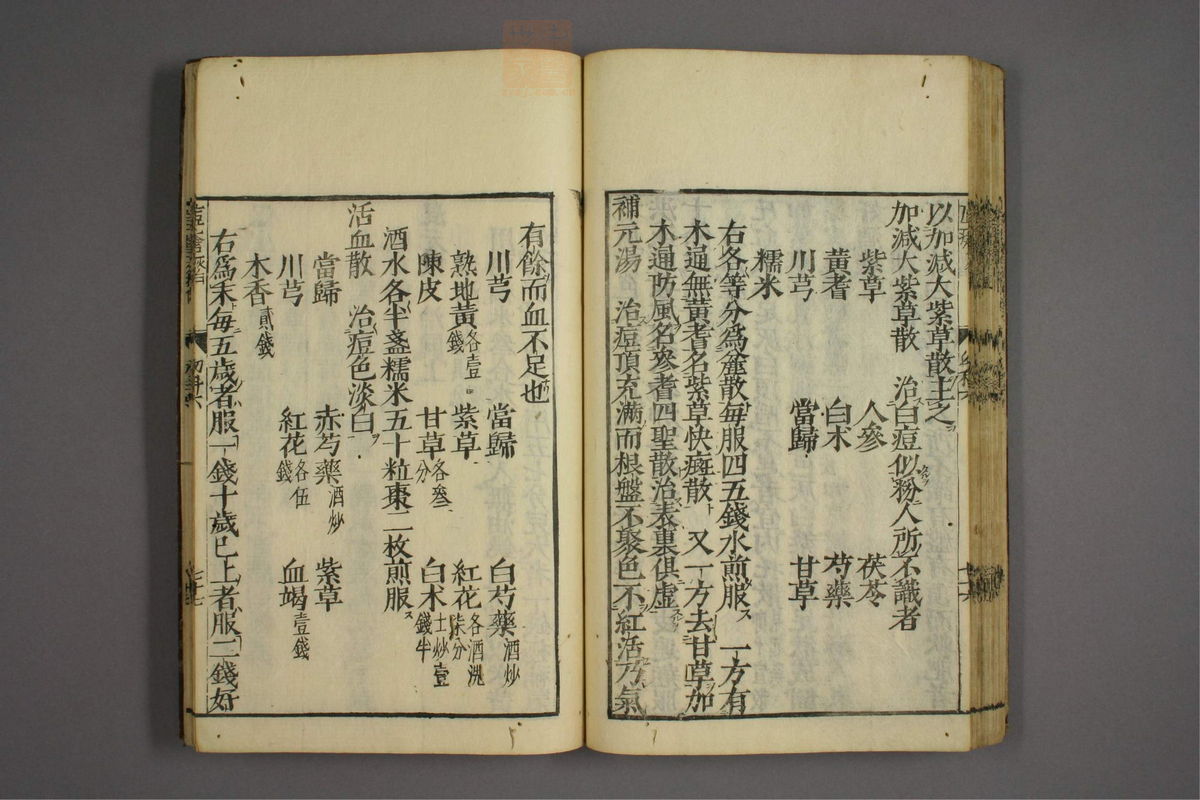 以加減大紫草散主之
加減大紫草散　治白痘似粉人所不識者
紫草　人參　茯苓
黄耆　白朮　芍藥
川芎　當歸　甘草
糯米
右各等分爲麄散毎服四五錢水煎服　一方有
木通無黄耆名紫草快癍散　又一方去甘草加
木通防風名參耆四聖散治表裏俱虛
補元湯　治痘頂充滿而根盤不聚色不紅活乃氣
有餘而血不足也
川芎　當歸　白芍藥酒炒
熟地黄各壹錢　紫草　紅花各酒洗柒分
陳皮　甘草各叁分　白朮土炒壹錢半
酒水各半盞糯米五十粒棗一枚煎服
活血散　治痘色淡白
當歸　赤芍藥酒炒　紫草
川芎　紅花各伍錢　血竭壹錢
木香貳錢
右爲末毎五歲者服一錢十歲已上者服二錢好